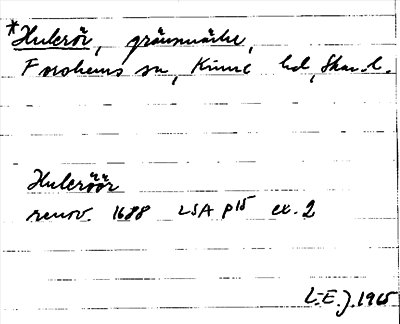 *Hulerör, gränsmärke,
Forshems sn, Kinne hd, Skar. l.
Huleröör
renov. 1688 LSA P15 ex. 2
L-E. J. 1965